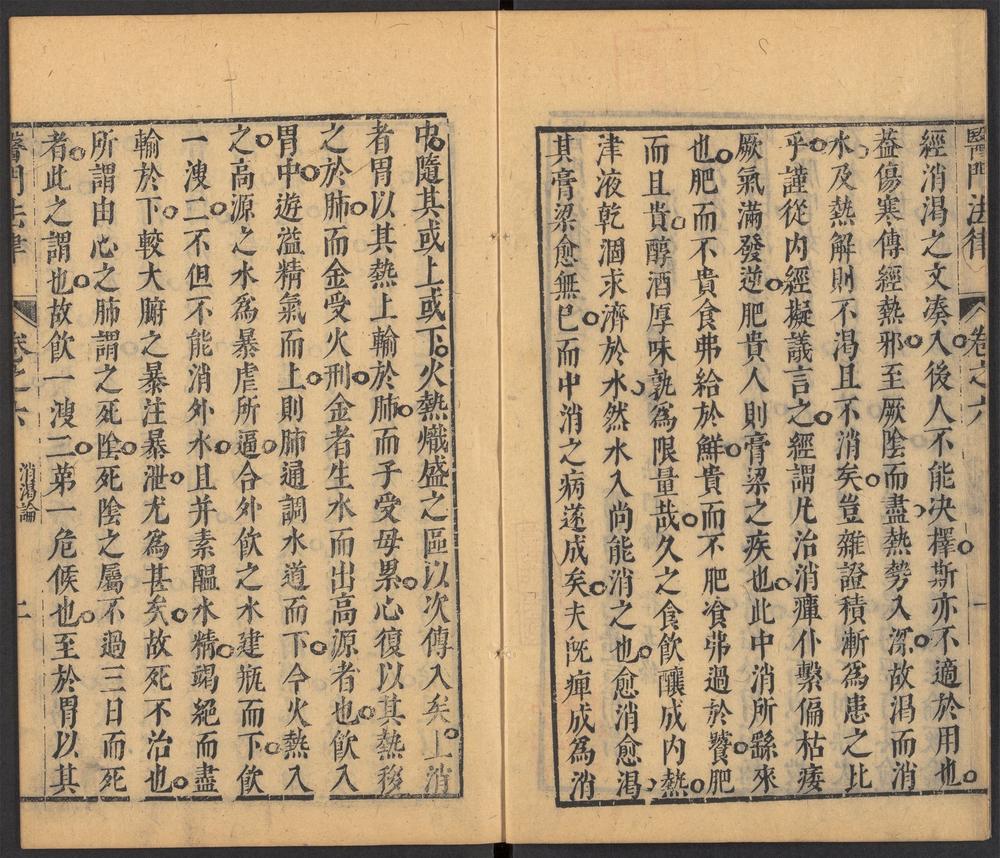 醫門法律
卷之六
經消渴之文湊入後人不能決擇斯亦不適於用也
蓋傷寒傳經熱邪至厥陰而盡熱勢入深故渴而消
水及熱解則不渴且不消矣豈雜證積漸為患之比
乎謹從內經擬議言之經謂凡治消癉仆擊偏枯痿
厥氣滿發逆肥貴人則膏粱之疾也此中消所繇來
也肥而不貴食弗給於鮮貴而不肥飡弗過於饕肥
而且貴醇酒厚味孰為限量哉久之食飲釀成內熱
津液乾涸求濟於水然水入尚能消之也愈消愈渴
其膏粱愈無已而中消之病遂成矣夫既癉成為消
中隨其或上或下火熱熾盛之區以次傳入矣上消
者胃以其熱上輸於肺而子受母累心復以其熱移
之於肺而金受火刑金者生水而出高源者也飲入
胃中遊溢精氣而上則肺通調水道而下今火熱入
之高源之水為暴虐所逼合外飲之水建瓶而下飲
一溲二不但不能消外水且并素醞水精竭絕而盡
輸於下較大腑之暴注暴泄尤為甚矣故死不治也
所謂由心之肺謂之死陰死陰之屬不過三日而死
者此之謂也故飲一溲二第一危候也至於胃以其
醫門法律
卷之六
消渴論
二